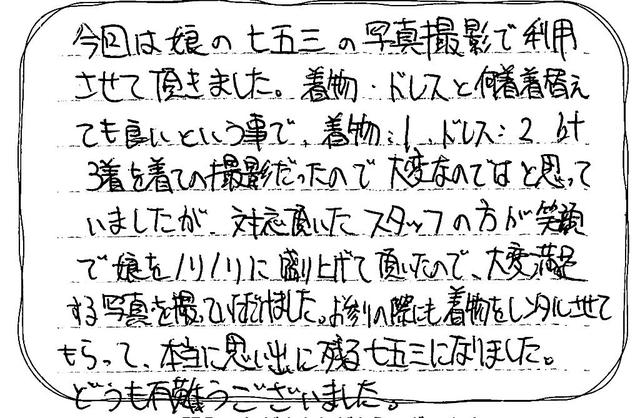 今回は娘の七五三の写真撮影で利用
させて頂きました。着物・ドレスと何着着替え
ても良いという事で、着物:1、ドレス:2 計
3着を着ての撮影だったので大変なのではと思って
いましたが、対応頂いたスタッフの方が笑顔
で娘をノリノリに盛り上げて頂いたので、大変満足
する写真を撮っていただけました。お参りの際にも着物をレンタルさせて
もらって、本当に思い出に残る七五三になりました。
どうも有難うございました。